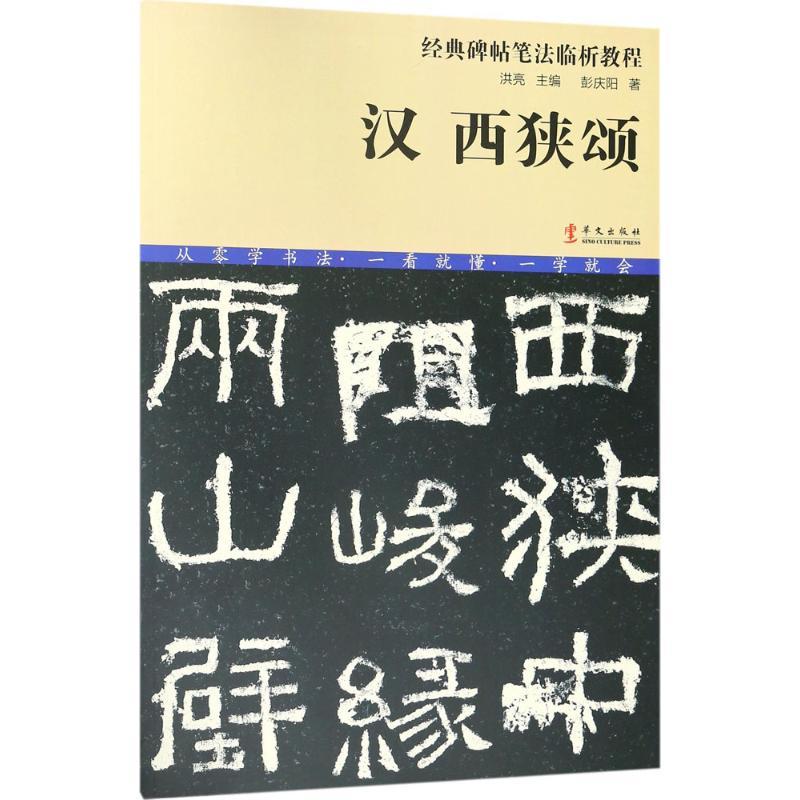 经典碑帖笔法临析教程
洪亮 主编 彭庆阳 著
汉 西狭颂
華文出版社
SINO CULTURE PRESS
从零学书法·一看就懂·一学就会
西狹中
阻峻緣
兩山壁